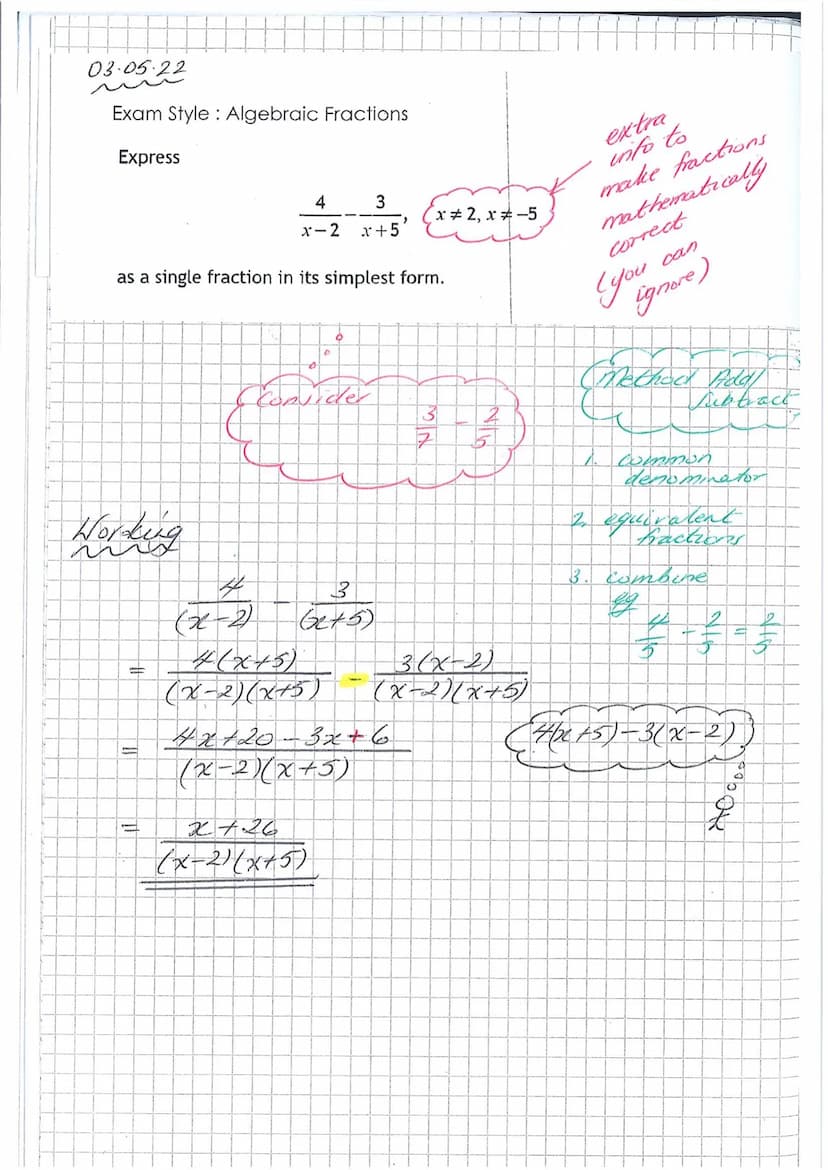 03.05.22
Exam Style : Algebraic Fractions
Express
4/(x−2) − 3/(x+5), x ≠ 2, x ≠ −5
as a single fraction in its simplest form.
extra
info to
make fractions
mathematically
correct
(you can
ignore)
Consider
3/7 − 2/5
Method Add/
Subtract
1. common
denominator
2. equivalent
fractions
3. combine
eg
4/5 − 2/5 = 2/5
Working
4/(x−2) − 3/(x+5)
= 4(x+5)/(x−2)(x+5) − 3(x−2)/(x−2)(x+5)
= 4x+20−3x+6/(x−2)(x+5)
4(x+5)−3(x−2)
= x+26/(x−2)(x+5)